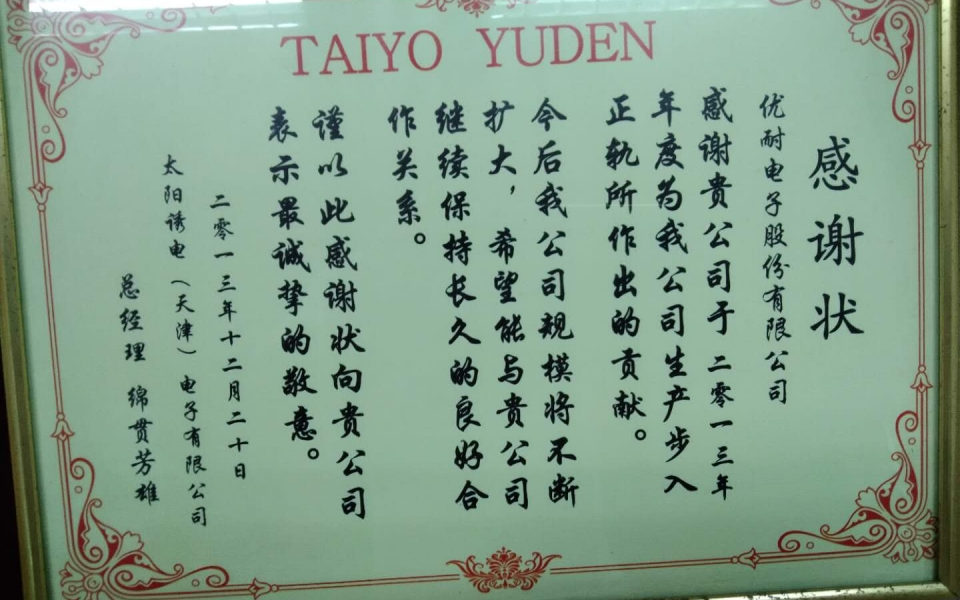 TAIYO YUDEN
感谢状
优耐电子股份有限公司
感谢贵公司于二零一三年
年度为我公司生产步入
正轨所作出的贡献。
今后我公司规模将不断
扩大，希望能与贵公司
继续保持长久的良好合
作关系。
谨以此感谢状向贵公司
表示最诚挚的敬意。
二零一三年十二月二十日
太阳诱电（天津）电子有限公司
总经理 绵贯芳雄